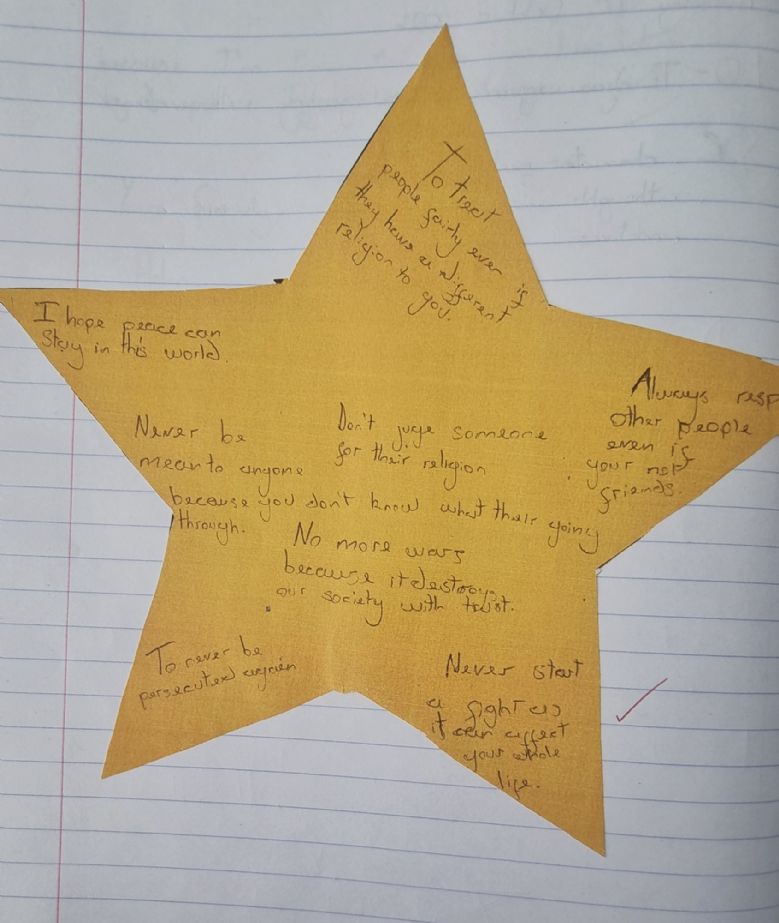 To treat
people fairly even if
they have a different
religion to you.
I hope peace can
Stay in this world.
Always resp
other people
even if
your not
friends.
Never be
mean to anyone
because you don't know what their going
through.
Don't juge someone
for their religion
No more wars
because it destroys
our society with trust.
To never be
persecuted again
Never start
a fight as
it can affect
your whole
life.